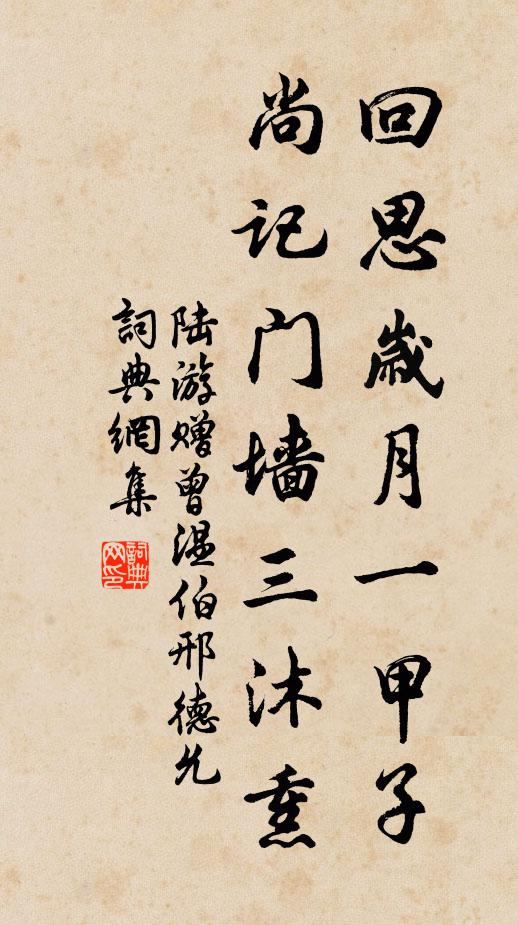 回思歲月一甲子
尚记门墙三沐熏
陆游赠曾温伯邢德允
詞典網集
詞典网印